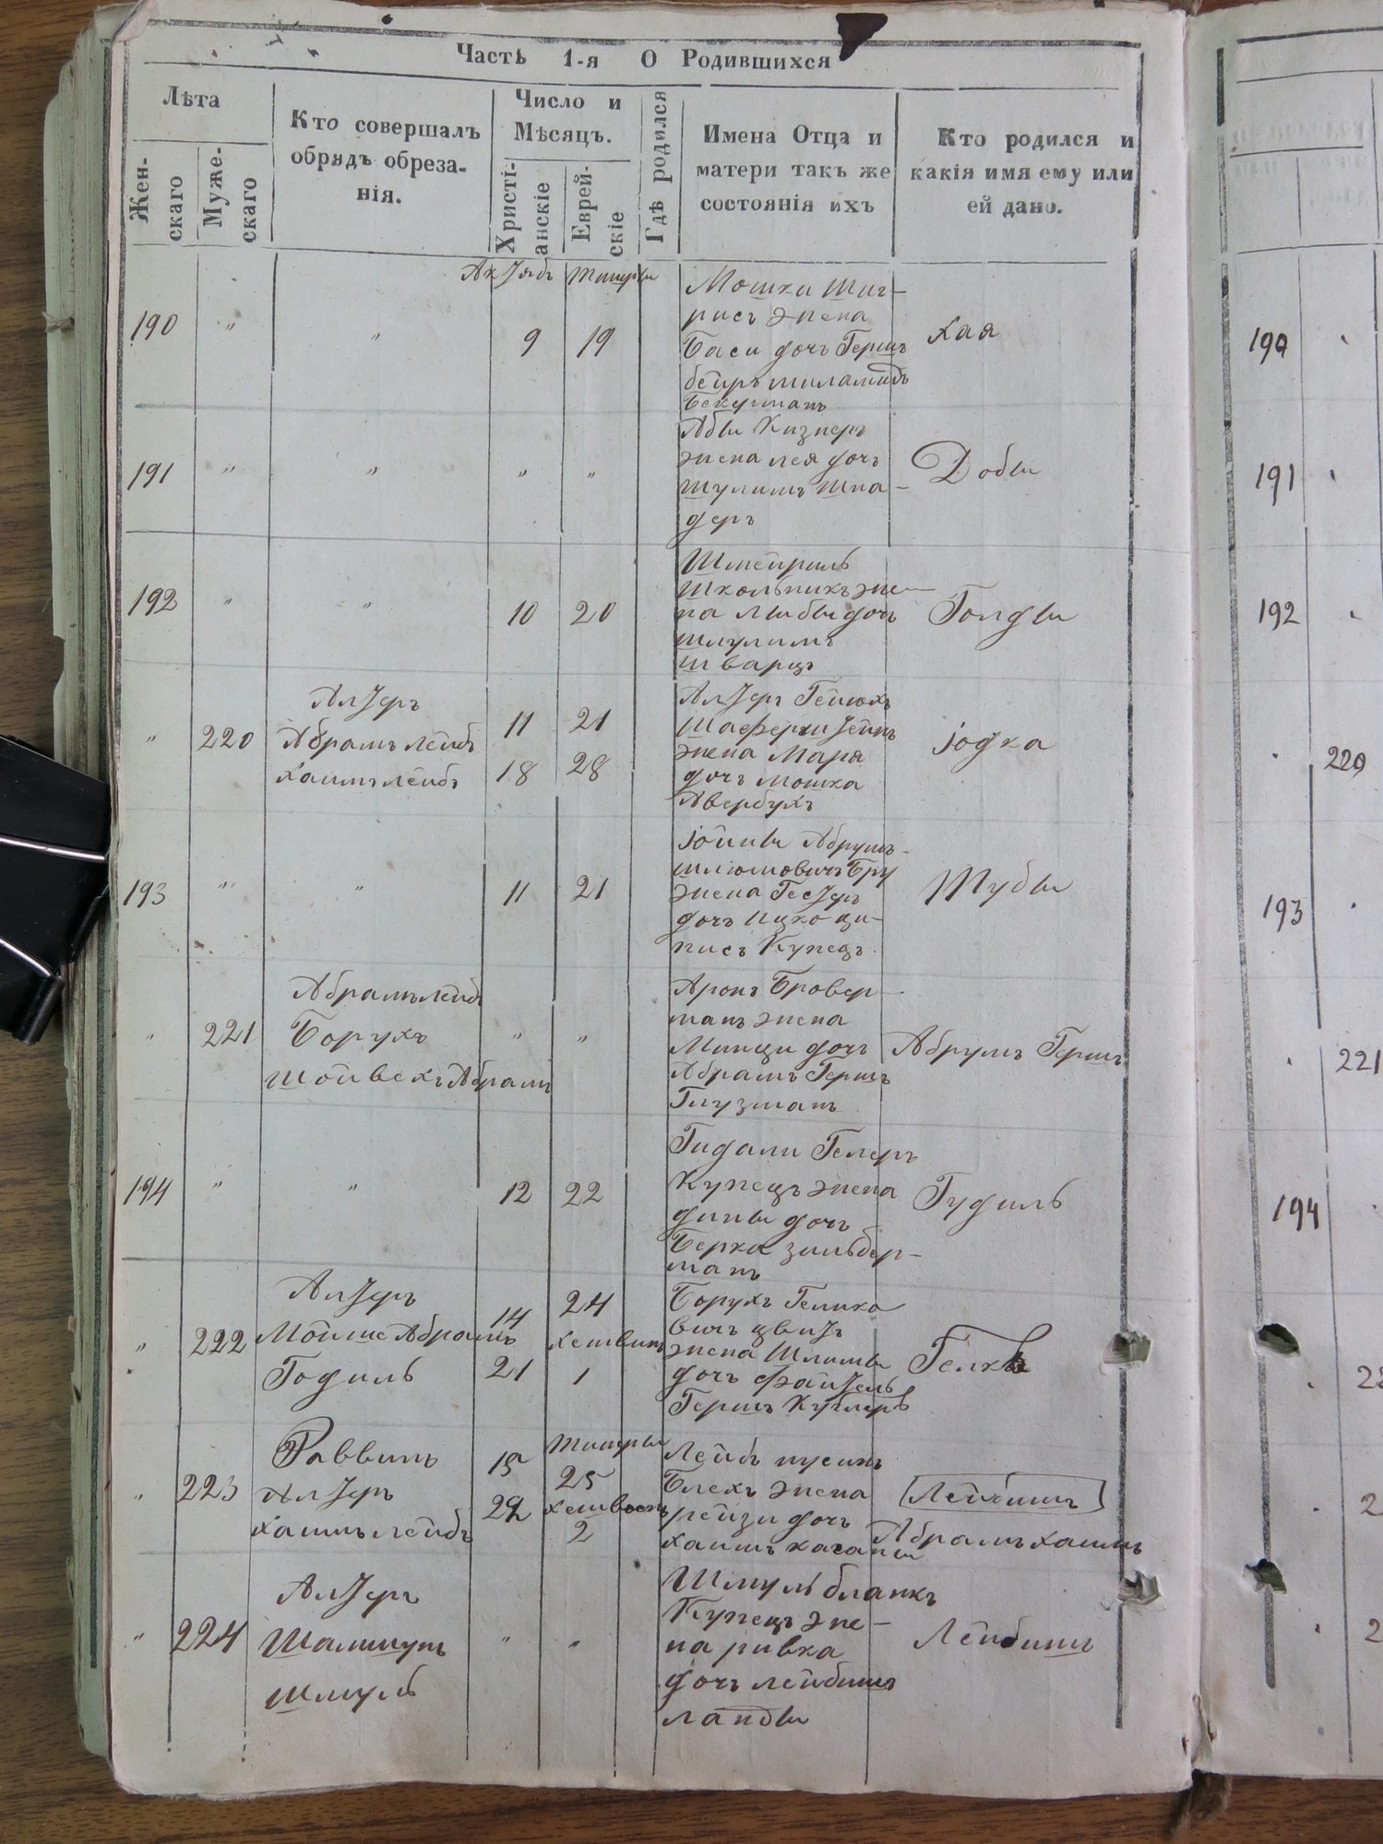 Часть 1-я О Родившихся
Лѣта
Жен-
скаго
Муже-
скаго
Кто совершалъ
обрядъ обреза-
нія.
Число и
Мѣсяцъ.
Христі-
анскіе
Еврей-
скіе
Гдѣ родился
Имена Отца и
матери такъ же
состоянія ихъ
Кто родился и
какія имя ему или
ей дано.
Актябъ Тишры
190 " " 9 19
Мошка
жена
Баси дочь Герш
Бекерманъ
Хая
191 " " " "
Абы Кизнеръ
жена лея дочь
Шулимъ Шна-
деръ
Добы
192 " " 10 20
Школьникъ же-
на Либы дочь
Шулимъ
Шварцъ
Голды
" 220
Алтеръ
Абрамъ лейбъ
хаимъ лейбъ
11 21
18 28
Алтеръ Генихъ
жена Маря
дочь мошка
Авербухъ
Іодка
193 " " 11 21
Іойны Абрумъ-
шлюмовичъ
жена Гестеръ
дочь Ицко ци-
писъ Купецъ
Тубы
" 221
Абрамъ лейб
Борухъ
Шойвехъ Абрамъ
" "
Аронъ Бровер-
манъ жена
Минци дочь
Абрамъ Гершъ
Глузманъ
Абрумъ Гершъ
194 " " 12 22
Гидали Гелеръ
Купецъ жена
дины дочь
Берка зильбер-
манъ
Гудиль
" 222
Алтеръ
Мойше Абрамъ
Годиль
14 24
хешвинъ
21 1
Борухъ Гелико
вичъ цвитъ
жена Шлимы
дочь файтель
Гершъ
" 223
Раввинъ
Алтеръ
хаимъ лейбъ
15 Тишры
25
22 хешвенъ
2
Лейбъ нусинъ
Блехъ жена
рейзи дочь
хаимъ
Абрамъ хаимъ
" 224
Алтеръ
Шамшунъ
Шмуль
" "
Шмуль бланкъ
Купецъ же-
на ривка
дочь лейбишъ
ланды
Лейбишъ
190
191
192
220
193
221
194